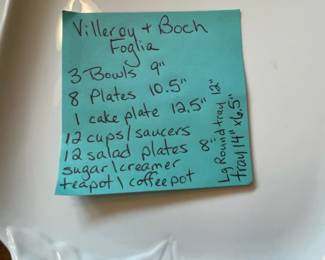 Villeroy + Boch
Foglia
3 Bowls 9"
8 Plates 10.5"
1 cake plate 12.5"
12 cups/saucers
12 salad plates 8"
sugar/creamer
teapot/coffeepot
Lg Round tray 12"
tray 14" x 6.5"